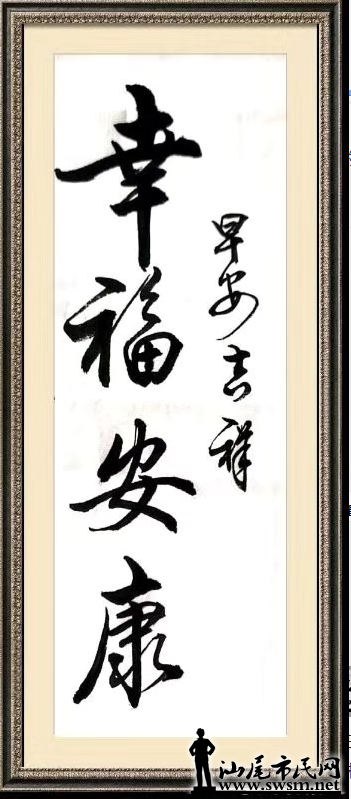 早安吉祥
幸福安康
汕尾市民网
www.swsm.net